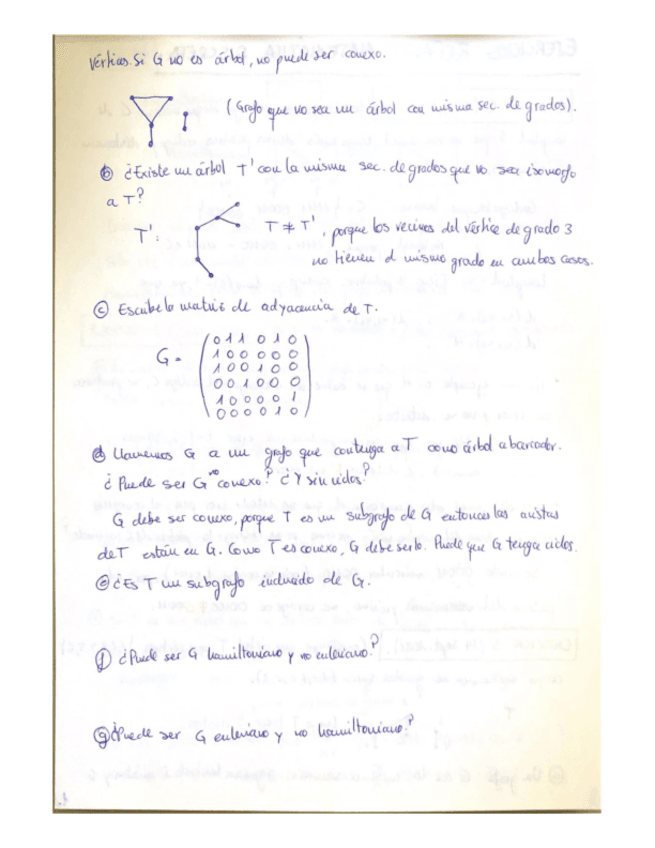 vértices. Si G no es árbol, no puede ser conexo.
(Grafo que no sea un árbol con misma sec. de grados).
b ¿Existe un árbol T' con la misma sec. de grados que no sea isomorfo
a T?
T': T ≠ T', porque los vecinos del vértice de grado 3
no tienen el mismo grado en ambos casos.
c Escribe la matriz de adyacencia de T.
G =
0 1 1 0 1 0
1 0 0 0 0 0
1 0 0 1 0 0
0 0 1 0 0 0
1 0 0 0 0 1
0 0 0 0 1 0
d Llamemos G a un grafo que contenga a T como árbol abarcador.
¿Puede ser G no conexo? ¿Y sin ciclos?
G debe ser conexo, porque T es un subgrafo de G entonces las aristas
de T están en G. Como T es conexo, G debe serlo. Puede que G tenga ciclos.
e ¿Es T un subgrafo inducido de G.
f ¿Puede ser G hamiltoniano y no euleriano?
g ¿Puede ser G euleriano y no hamiltoniano?